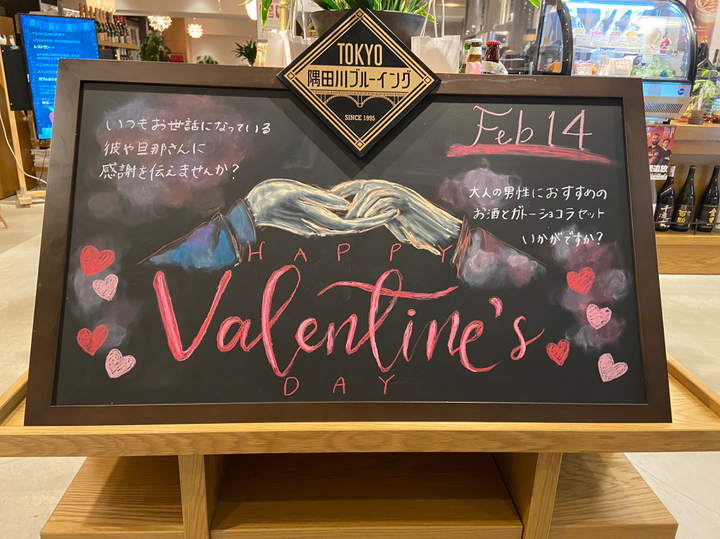 TOKYO
隅田川ブルーイング
SINCE 1995
いつもお世話になっている
彼や旦那さんに
感謝を伝えませんか?
Feb 14
大人の男性におすすめの
お酒とガトーショコラセット
いかがですか?
HAPPY
Valentine's
DAY